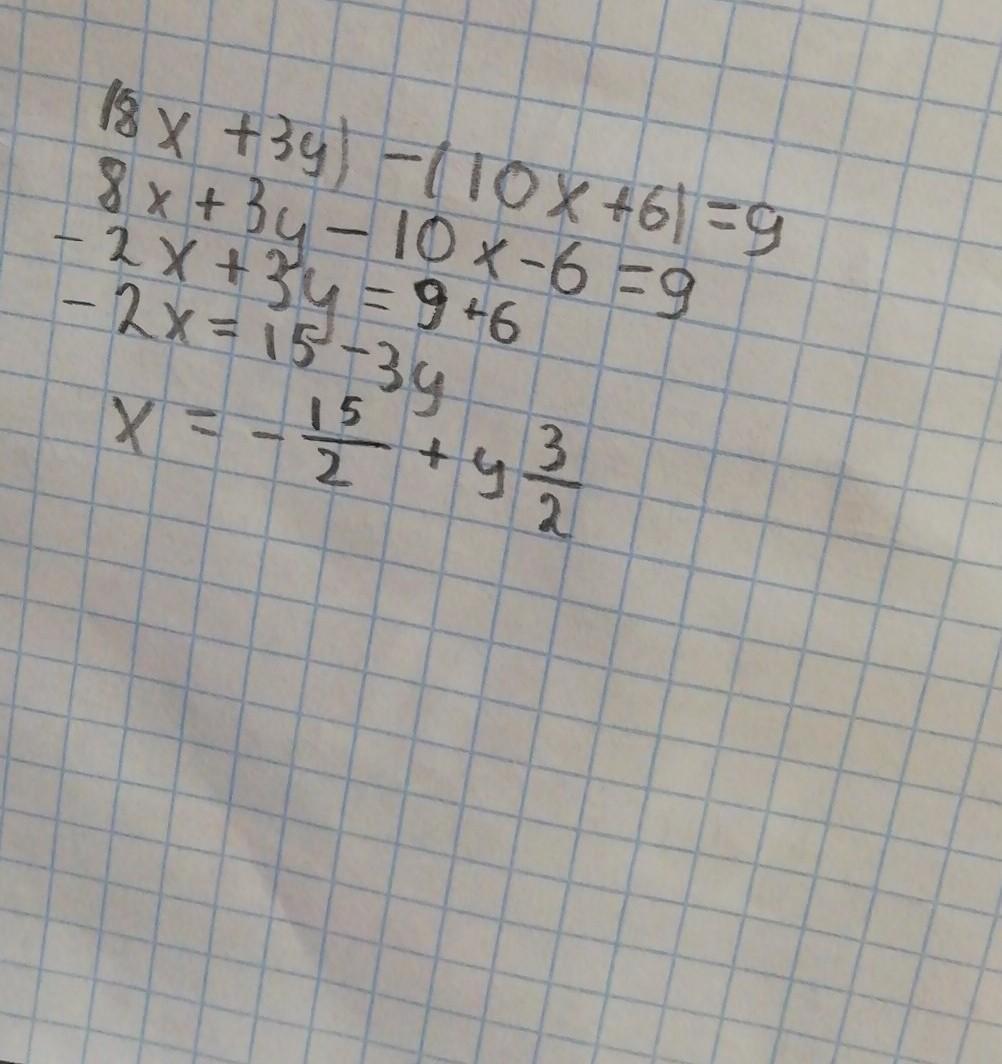 (8x +3y) -(10x+6) =9
8x+3y-10x-6=9
-2x+3y=9+6
-2x=15-3y
x = -15/2 + y 3/2